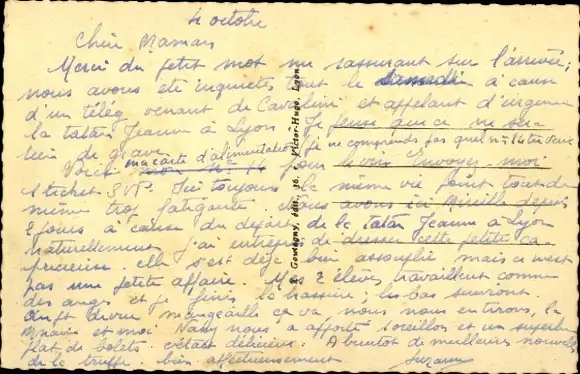 4 octobre
Chère Maman
Merci du petit mot me rassurant sur l'arrivée;
nous avons été inquiètes tout le samedi à cause
d'un télég venant de Cavalieri et appelant d'urgence
la tatan Jeanne à Lyon. Je pense que ce ne sera
rien de grave. je ne comprends pas quel n°
Voici ma carte d'alimentation pour le vin Envoyez-moi
1 ticket S.V.P. Ici toujours la même vie point tout de
même trop fatigante. Nous avons ici Mireille depuis
2 jours à cause du départ de la tatan Jeanne à Lyon
naturellement j'ai entrepris de dresser cette petite ca-
pricieuse. Elle s'est déjà bien assouplie mais ce n'est
pas une petite affaire. Mes 2 élèves travaillent comme
des anges et je finis la brassière; les bas suivront.
mangeaille ça va, nous nous en tirons, la
et moi. Nany nous a apporté oreillons et un superbe
plat de bolets c'était délicieux. A bientôt de meilleures nouvelles
de la truffe. bien affectueusement Suzanne
E. Goutagny, édit. 36, r. Victor-Hugo, Lyon